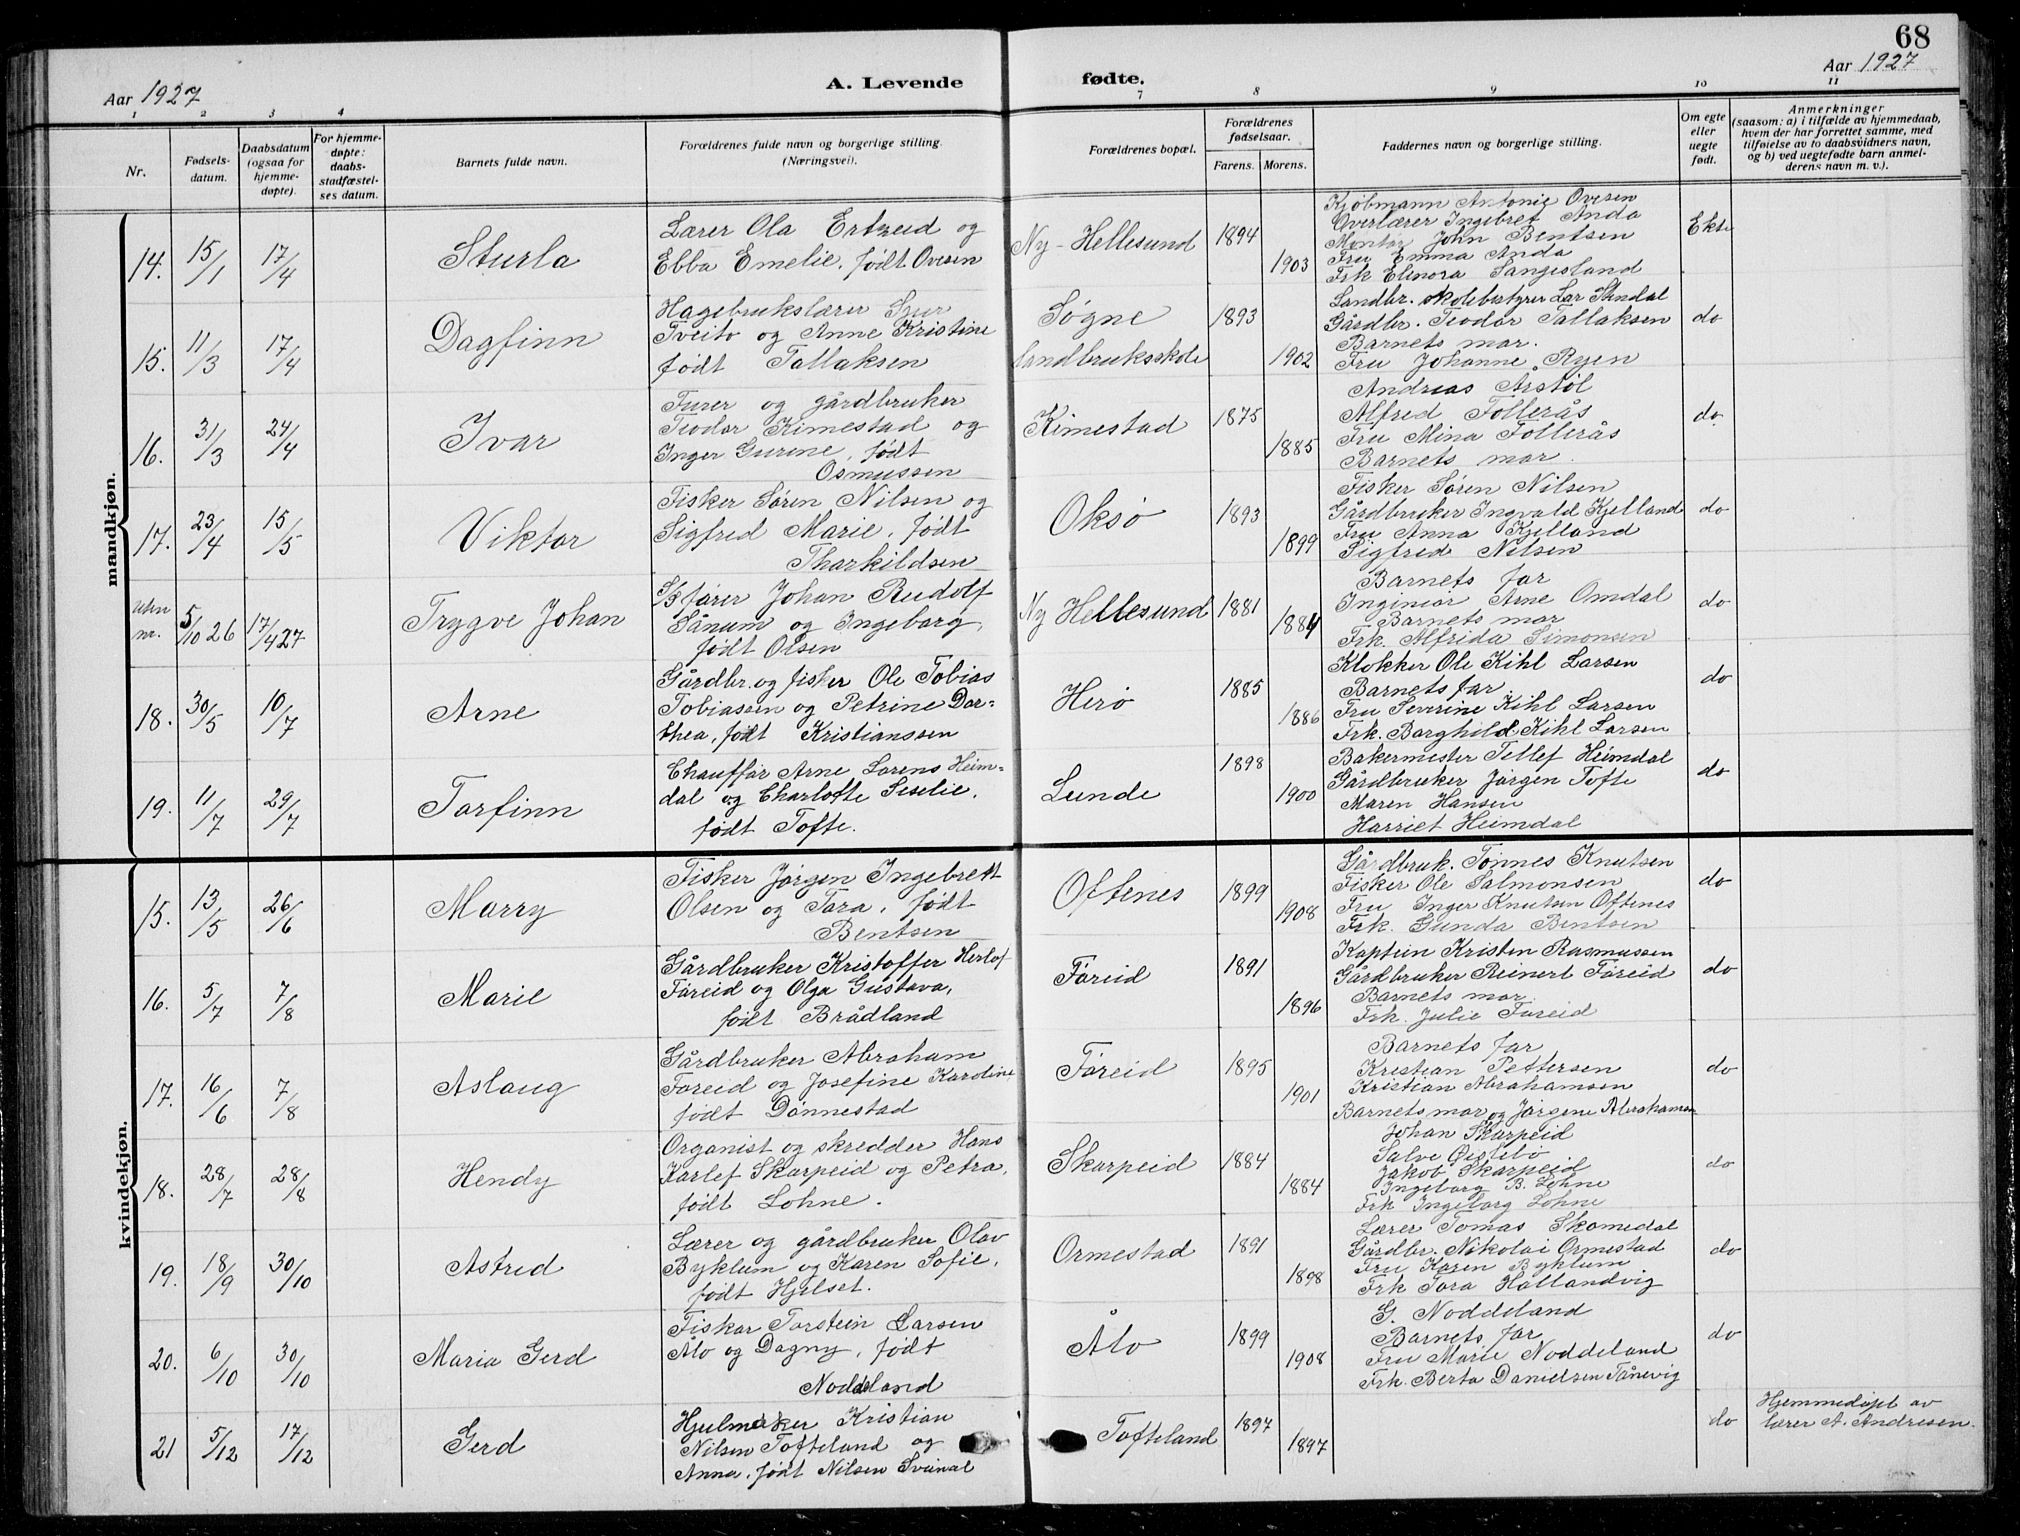 68
Aar 1927
A. Levende fødte.
Aar 1927
1 2 3 4 7 8 9 10 11
Nr.
Fødsels-
datum.
Daabsdatum
(ogsaa for
hjemme-
døpte).
For hjemme-
døpte:
daabs-
stadfæstel-
ses datum.
Barnets fulde navn.
Forældrenes fulde navn og borgerlige stilling.
(Næringsvei).
Forældrenes bopæl.
Forældrenes
fødselsaar.
Farens. Morens.
Faddernes navn og borgerlige stilling.
Om egte
eller
uegte
født.
Anmerkninger
(saasom: a) i tilfælde av hjemmedaab,
hvem der har forrettet samme, med
tilføielse av to daabsvidners navn,
og b) ved uegtefødte barn anmel-
derens navn m. v.).
mandkjøn.
14. 15/1 17/4 Sturla
Lærer Ola Ertzeid og
Ebba Emelie, født Ovesen
Ny-Hellesund 1894 1903
Kjøbmann Antonie Ovesen
Overlærer Ingebret Anda
Montør John Bentsen
Fru Emma Anda
Frk Elinora Langesland
Ekte
15. 11/3 17/4 Dagfinn
Hagebrukslærer Sjur
Tveito og Anne Kristine
født Tallaksen
Søgne
landbruksskole
1893 1902
Landbr. skolebestyrer Lar Stendal
Gårdbr. Teodor Tallaksen
Barnets mor.
Fru Johanne Ryen
do
16. 31/3 24/4 Ivar
Furer og gårdbruker
Teodor Kimestad og
Inger Gurine, født
Osmussen
Kimestad 1875 1885
Andreas Årstøl
Alfred Follerås
Fru Mina Follerås
Barnets mor.
do
17. 23/4 15/5 Viktor
Fisker Søren Nilsen og
Sigfred Marie, født
Tharkildsen
Oksø 1893 1899
Fisker Søren Nilsen
Gårdbruker Ingvald Kjelland
Fru Anna Kjelland
Sigfred Nilsen
do
uten
nr. 5/10 26 17/4 27 Trygve Johan
S/fører Johan Rudolf
Sånum og Ingeborg,
født Olsen
Ny Hellesund 1881 1884
Barnets far
Inginiør Arne Omdal
Barnets mor
Frk. Alfrida Simonsen
do
18. 30/5 10/7 Arne
Gårdbr. og fisker Ole Tobias
Tobiassen og Petrine Dor-
thea, født Kristianssen
Herø 1885 1886
Klokker Ole Kihl Larsen
Barnets far
Fru Severine Kihl Larsen
Frk. Borghild Kihl Larsen
do
19. 11/7 29/7 Torfinn
Chauffør Arne Lorens Heim-
dal og Charlotte Seselie,
født Tofte.
Lunde 1898 1900
Bakermester Tellef Heimdal
Gårdbruker Jørgen Tofte
Maren Hansen
Harriet Heimdal
do
kvindekjøn.
15. 13/5 26/6 Marry
Fisker Jørgen Ingebrett
Olsen og Tora, født
Bentsen
Oftenes 1899 1908
Gårdbruk. Tønnes Knutsen
Fisker Ole Salmonsen
Fru Inger Knutsen Oftenes
Frk. Gunda Bentsen
do
16. 5/7 7/8 Marie
Gårdbruker Kristoffer Herlof
Føreid og Olga Gustava,
født Brådland
Føreid 1891 1896
Kaptein Kristen Rasmussen
Gårdbruker Reinert Føreid
Barnets mor.
Frk. Julie Føreid
do
17. 16/6 7/8 Aslaug
Gårdbruker Abraham
Føreid og Josefine Karoline
født Dønnestad
Føreid 1895 1901
Barnets far
Kristian Pettersen
Kristian Abrahamsen
Barnets mor og Jørgine Abrahamsen
do
18. 28/7 28/8 Hendy
Organist og skredder Hans
Tarlef Skarpeid og Petra,
født Lohne.
Skarpeid 1884 1884
Johan Skarpeid
Salve Øislebø
Jakob Skarpeid
Ingeborg B. Lohne
Frk Ingeborg Lohne
do
19. 18/9 30/10 Astrid
Lærer og gårdbruker Olav
Byklum og Karen Sofie,
født Hjelset.
Ormestad 1891 1898
Lærer Tomas Skomedal
Gårdbr. Nikolai Ormestad
Fru Karen Byklum
Frk Tora Hallandvig
do
20. 6/10 30/10 Maria Gerd
Fisker Torstein Larsen
Ålo og Dagny, født
Noddeland
Ålo 1899 1908
G. Noddeland
Barnets far
Fru Marie Noddeland
Frk. Berta Danielsen Tånevig
do
21 5/12 17/12 Gerd
Hjulmaker Kristian
Nilsen Tofteland og
Anna, født Nilsen Sveinal
Tofteland 1897 1897
do
Hjemmedøpt av
lærer A. Andresen.